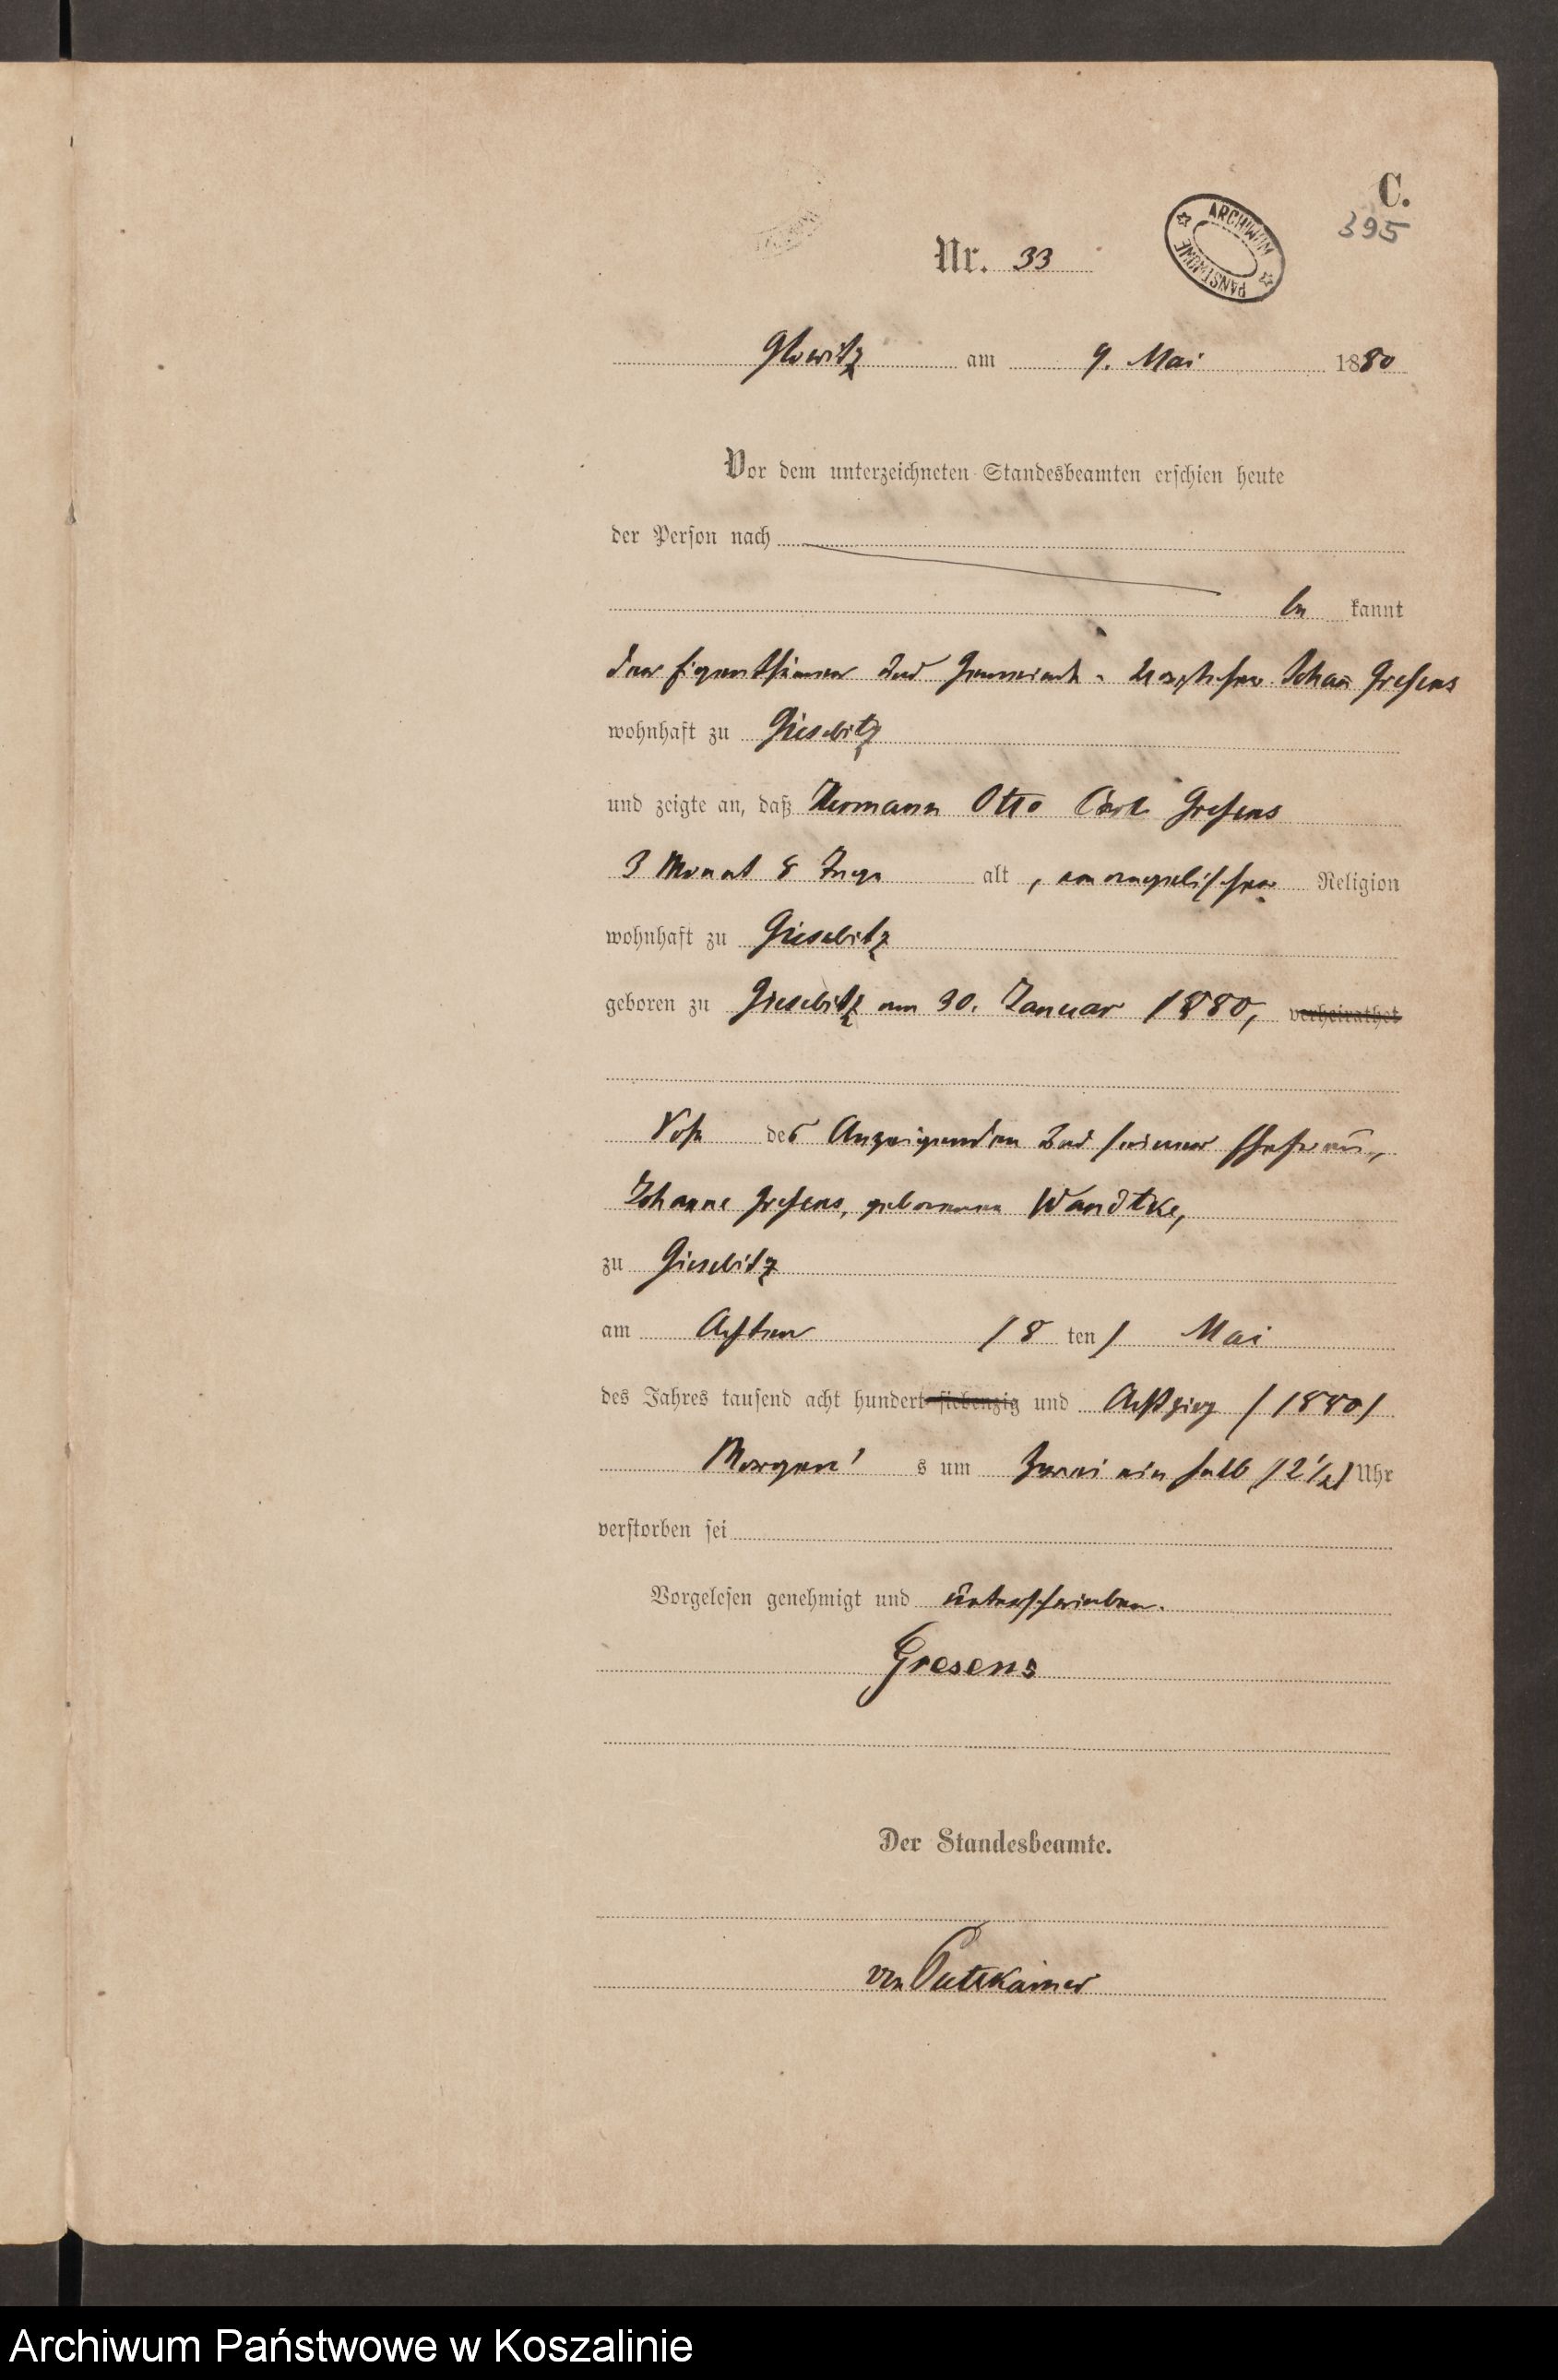 C.
395
Nr. 33
ARCHIWUM PAŃSTWOWE
Glowitz am 9. Mai 1880
Vor dem unterzeichneten Standesbeamten erschien heute
der Person nach
be kannt
der Eigenthümer und Gemeinde-Vorsteher Johann Gresens
wohnhaft zu Giesebitz
und zeigte an, daß Hermann Otto Carl Gresens
3 Monat 8 Tage alt, evangelischer Religion
wohnhaft zu Giesebitz
geboren zu Giesebitz am 30. Januar 1880, verheirathet
Sohn des Anzeigenden und seiner Ehefrau,
Johanne Gresens, geborenen Wandtke,
zu Giesebitz
am Achten /8 ten/ Mai
des Jahres tausend acht hundert siebenzig und Achtzig /1880/
Morgen's um Zwei ein halb /2 1/2/ Uhr
verstorben sei
Vorgelesen genehmigt und unterschrieben.
Gresens
Der Standesbeamte.
von Puttkamer
Archiwum Państwowe w Koszalinie